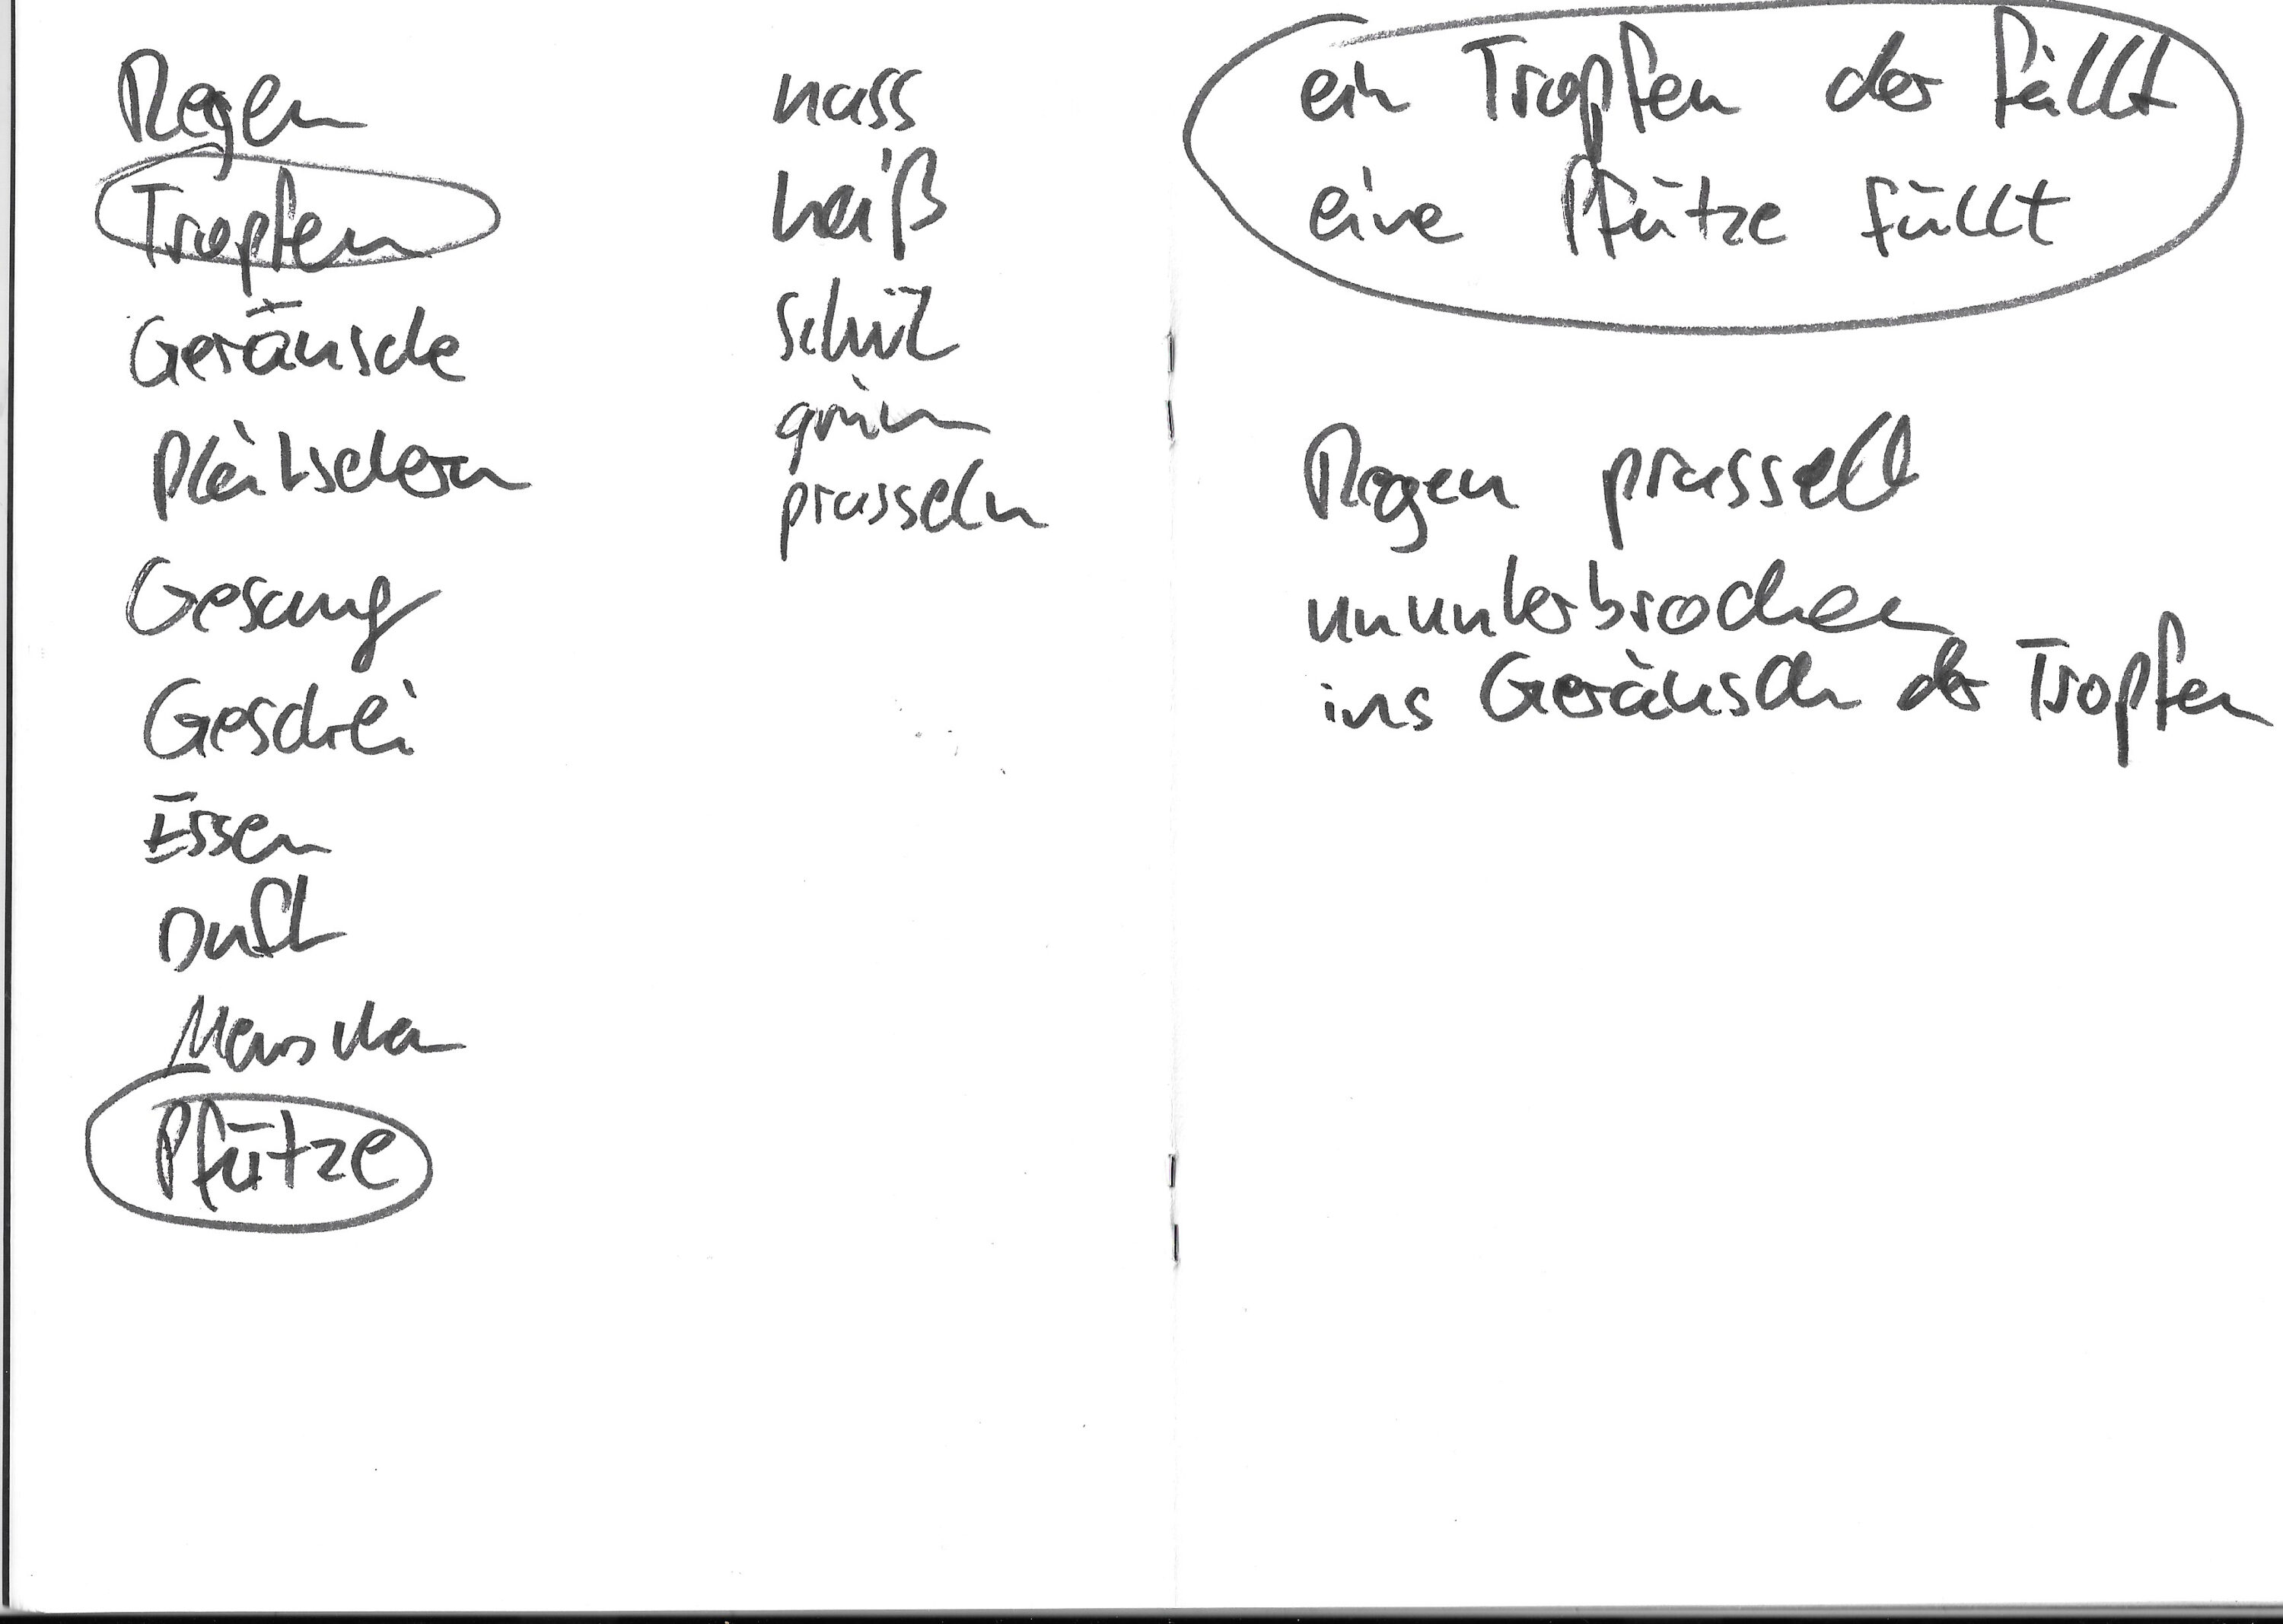 Regen
Tropfen
Geräusche
Plätschern
Gesang
Geschrei
Essen
Duft
Menschen
Pfütze
nass
heiß
schwül
grün
prasseln
ein Tropfen der fällt
eine Pfütze füllt
Regen prasselt
ununterbrochen
ins Geräusch der Tropfen